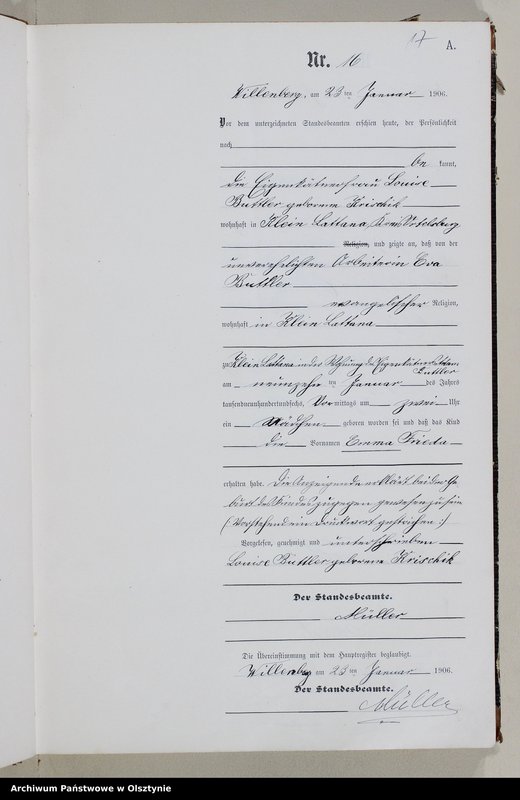 17 A.
Nr. 16
Willenberg, am 23 ten Januar 1906.
Vor dem unterzeichneten Standesbeamten erschien heute, der Persönlichkeit
nach
be kannt,
die Eigenkätnerfrau Louise
Buttler geborene Krischik
wohnhaft in Klein Lattana, Kreis Ortelsburg
Religion, und zeigte an, daß von der
unverehelichten Arbeiterin Eva
Buttler
evangelischer Religion,
wohnhaft in Klein Lattana
zu Klein Lattana in der Wohnung des Eigenkätners
Buttler
am neunzehn ten Januar des Jahres
tausendneunhundertundsechs, Vormittags um zwei Uhr
ein Mädchen geboren worden sei und daß das Kind
die Vornamen Emma Frieda
erhalten habe. Die Anzeigende erklärt bei der Ge
burt des Kindes zugegen gewesen zu sein
(Vorstehend ein Druckwort gestrichen :)
Vorgelesen, genehmigt und unterschrieben
Louise Buttler geborene Krischik
Der Standesbeamte.
Müller
Die Übereinstimmung mit dem Hauptregister beglaubigt.
Willenberg am 23 ten Januar 1906.
Der Standesbeamte.
Müller
Archiwum Państwowe w Olsztynie